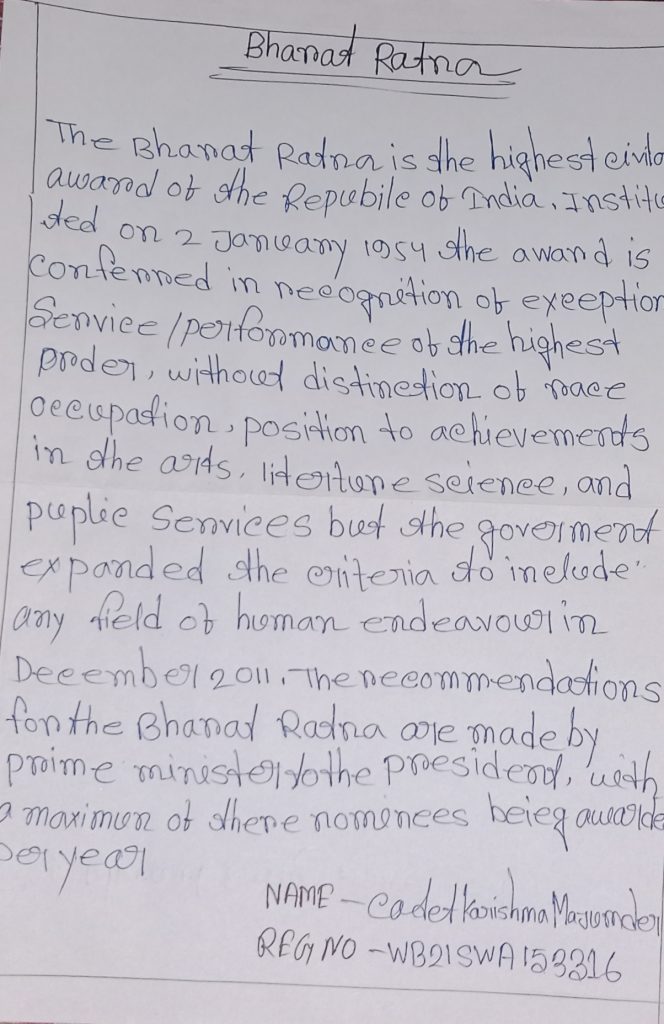 Bharat Ratna
The Bharat Ratna is the highest civila
award of the Repubile of India. Institu
ted on 2 January 1954 the award is
Conferred in recognition of exeeption
Service/performance of the highest
order, without distinction of race
occupation, position to achievements
in the arts, literture science, and
puplic Services but the goverment
expanded the criteria to include
any field of human endeavour in
December 2011. The recommendations
for the Bharat Ratna are made by
prime minister to the president, with
a maximum of there nominees beieg awarde
per year
NAME - Cadet Karishma Majumder
REG NO - WB21SWA153316